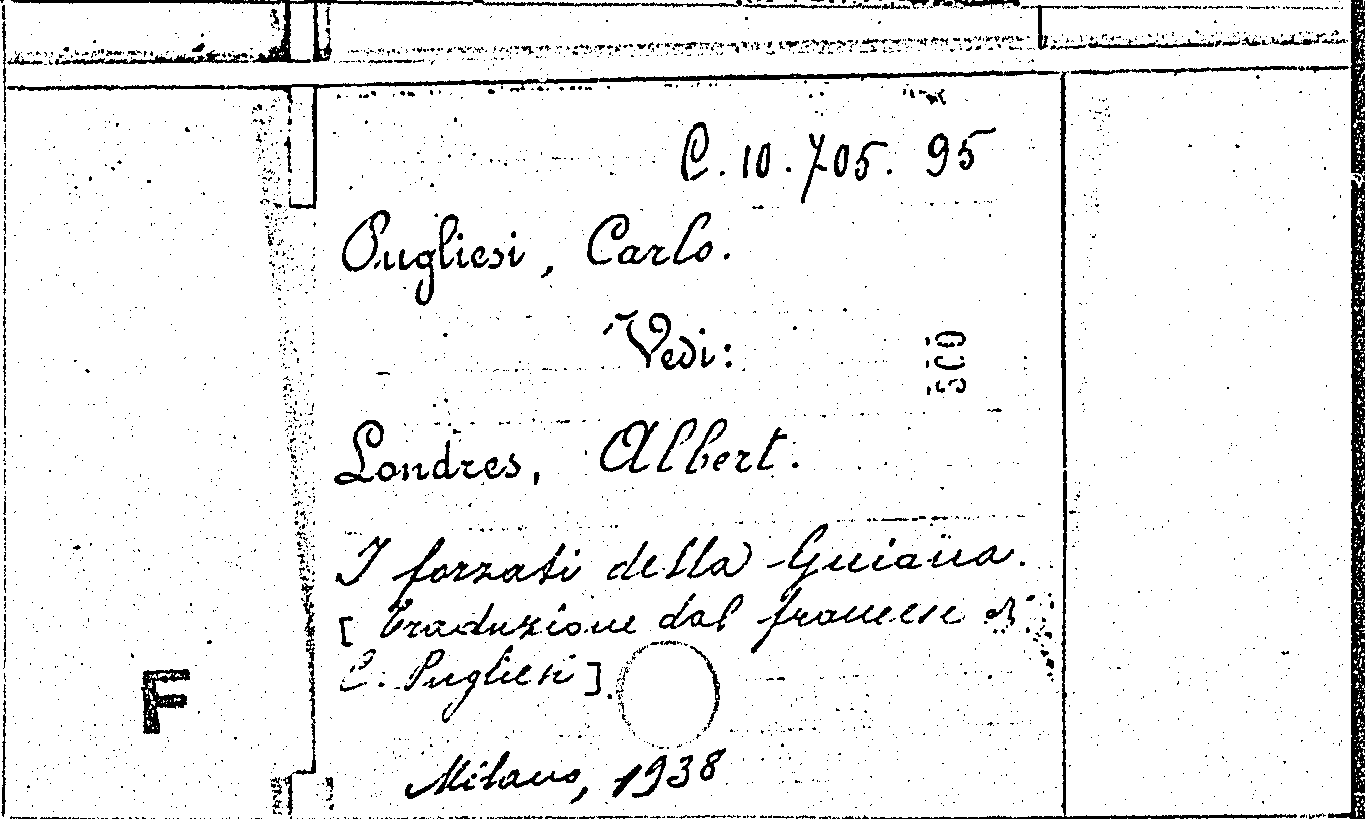 C. 10. 705. 95
Pugliesi, Carlo.
Vedi:
Londres, Albert.
I forzati della Guiana.
[Traduzione dal francese di
C. Pugliesi].
F
Milano, 1938